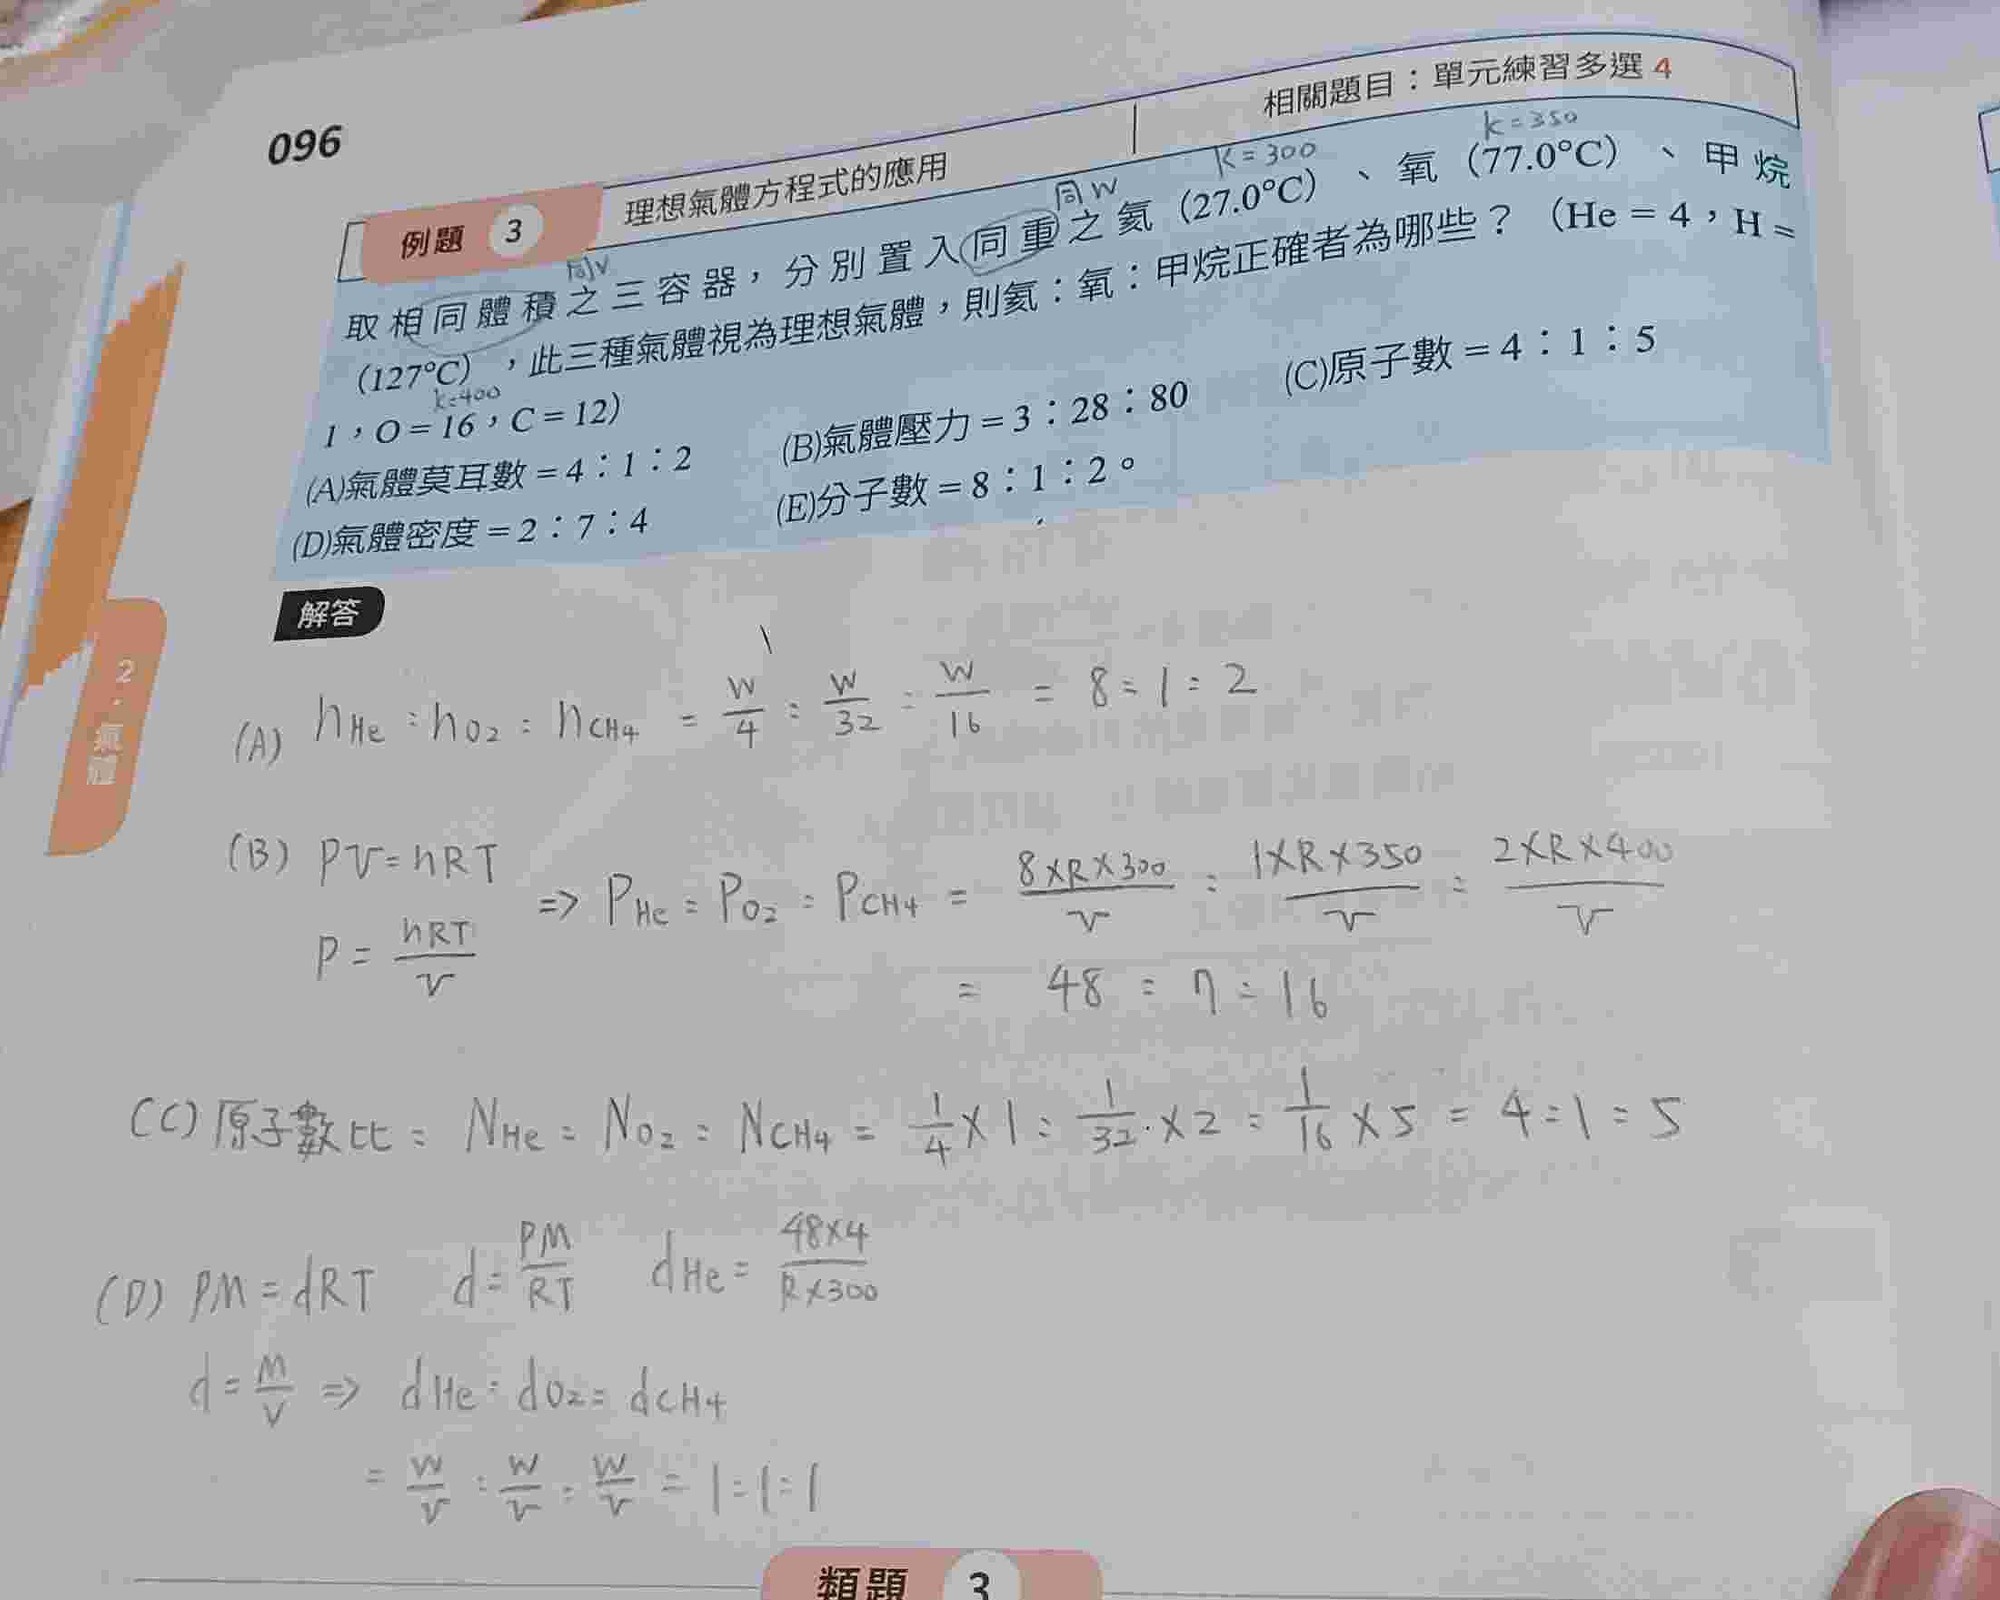 096
相關題目：單元練習多選 4
例題 3 理想氣體方程式的應用
同V 同W K=300 k=350
取相同體積之三容器，分別置入同重之氦（27.0°C）、氧（77.0°C）、甲烷
（127°C），此三種氣體視為理想氣體，則氦：氧：甲烷正確者為哪些？（He = 4，H =
k=400
1，O = 16，C = 12）
(A)氣體莫耳數 = 4：1：2 (B)氣體壓力 = 3：28：80 (C)原子數 = 4：1：5
(D)氣體密度 = 2：7：4 (E)分子數 = 8：1：2。
解答
2．氣體
(A) nHe : nO2 : nCH4 = W/4 : W/32 : W/16 = 8 : 1 : 2
(B) PV = nRT
P = nRT/V ⇒ PHe : PO2 : PCH4 = 8×R×300/V : 1×R×350/V : 2×R×400/V
= 48 : 7 : 16
(C) 原子數比 : NHe : NO2 : NCH4 = 1/4 × 1 : 1/32 × 2 : 1/16 × 5 = 4 : 1 : 5
(D) PM = dRT d = PM/RT dHe = 48×4/R×300
d = M/V ⇒ dHe : dO2 : dCH4
= W/V : W/V : W/V = 1 : 1 : 1
類題 3